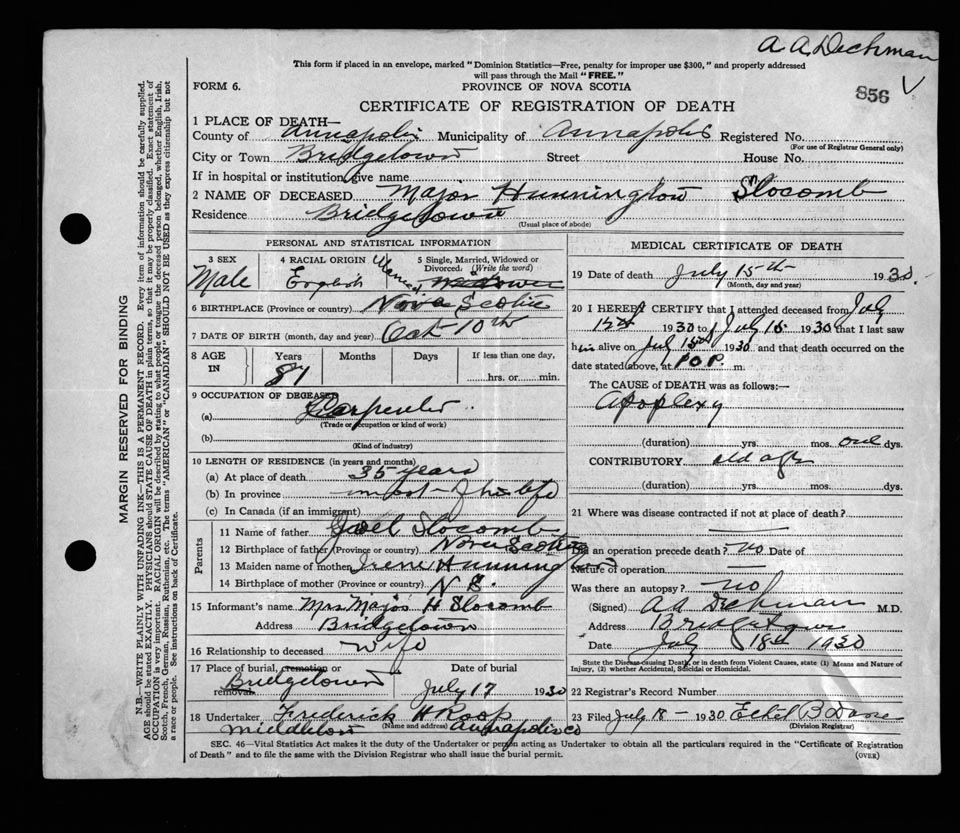 A A Dechman
This form if placed in an envelope, marked "Dominion Statistics—Free, penalty for improper use $300," and properly addressed
will pass through the Mail "FREE."
856
FORM 6.
PROVINCE OF NOVA SCOTIA
CERTIFICATE OF REGISTRATION OF DEATH
1 PLACE OF DEATH—
County of Annapolis Municipality of Annapolis Registered No.
(For use of Registrar General only)
City or Town Bridgetown Street House No.
If in hospital or institution give name
2 NAME OF DECEASED Major Hunnington Slocomb
Residence Bridgetown
(Usual place of abode)
PERSONAL AND STATISTICAL INFORMATION
3 SEX
Male
4 RACIAL ORIGIN
English
5 Single, Married, Widowed or
Divorced. (Write the word)
Married
6 BIRTHPLACE (Province or country) Nova Scotia
7 DATE OF BIRTH (month, day and year) Oct 10th
8 AGE
IN
Years
Months
Days
If less than one day,
hrs. or min.
9 OCCUPATION OF DECEASED
(a) Carpenter
(Trade or occupation or kind of work)
(b)
(Kind of industry)
10 LENGTH OF RESIDENCE (in years and months)
(a) At place of death 35 years
(b) In province most of his life
(c) In Canada (if an immigrant)
Parents
11 Name of father Joel Slocomb
12 Birthplace of father (Province or country) Nova Scotia
13 Maiden name of mother Irene Hunnington
14 Birthplace of mother (Province or country) N S.
15 Informant's name Mrs Major H Slocomb
Address Bridgetown
16 Relationship to deceased Wife
17 Place of burial, cremation or
removal Bridgetown
Date of burial
July 17 1930
18 Undertaker Frederick H Roop
(Name and address)
Middleton Annapolis co
MEDICAL CERTIFICATE OF DEATH
19 Date of death July 15th 1930.
(Month, day and year)
20 I HEREBY CERTIFY that I attended deceased from July
15th 1930 to July 15 1930 that I last saw
him alive on July 15th 1930 and that death occurred on the
date stated above, at 10 P. m.
The CAUSE of DEATH was as follows:—
Apoplexy
(duration) yrs. mos. one dys.
CONTRIBUTORY old age
(duration) yrs. mos. dys.
21 Where was disease contracted if not at place of death?
Did an operation precede death? no Date of
Nature of operation
Was there an autopsy? no
(Signed) A A Dechman M.D.
Address Bridgetown
Date July 18th 1930
State the Disease causing Death, or in death from Violent Causes, state (1) Means and Nature of
Injury, (2) whether Accidental, Suicidal or Homicidal.
22 Registrar's Record Number
23 Filed July 18 — 1930 Ethel B
(Division Registrar)
SEC. 46—Vital Statistics Act makes it the duty of the Undertaker or person acting as Undertaker to obtain all the particulars required in the "Certificate of Registration
of Death" and to file the same with the Division Registrar who shall issue the burial permit.
(OVER)
MARGIN RESERVED FOR BINDING
N.B.—WRITE PLAINLY WITH UNFADING INK—THIS IS A PERMANENT RECORD. Every item of information should be carefully supplied.
AGE should be stated EXACTLY. PHYSICIANS should STATE CAUSE OF DEATH in plain terms, so that it may be properly classified. Exact statement of
OCCUPATION is very important. RACIAL ORIGIN will be described by stating to what people or tongue the deceased person belonged, whether English, Irish,
Scotch, French, German, Russian, Ruthenian, etc. The terms "AMERICAN" or "CANADIAN" SHOULD NOT BE USED as they express citizenship but not
a race or people. See instructions on back of Certificate.